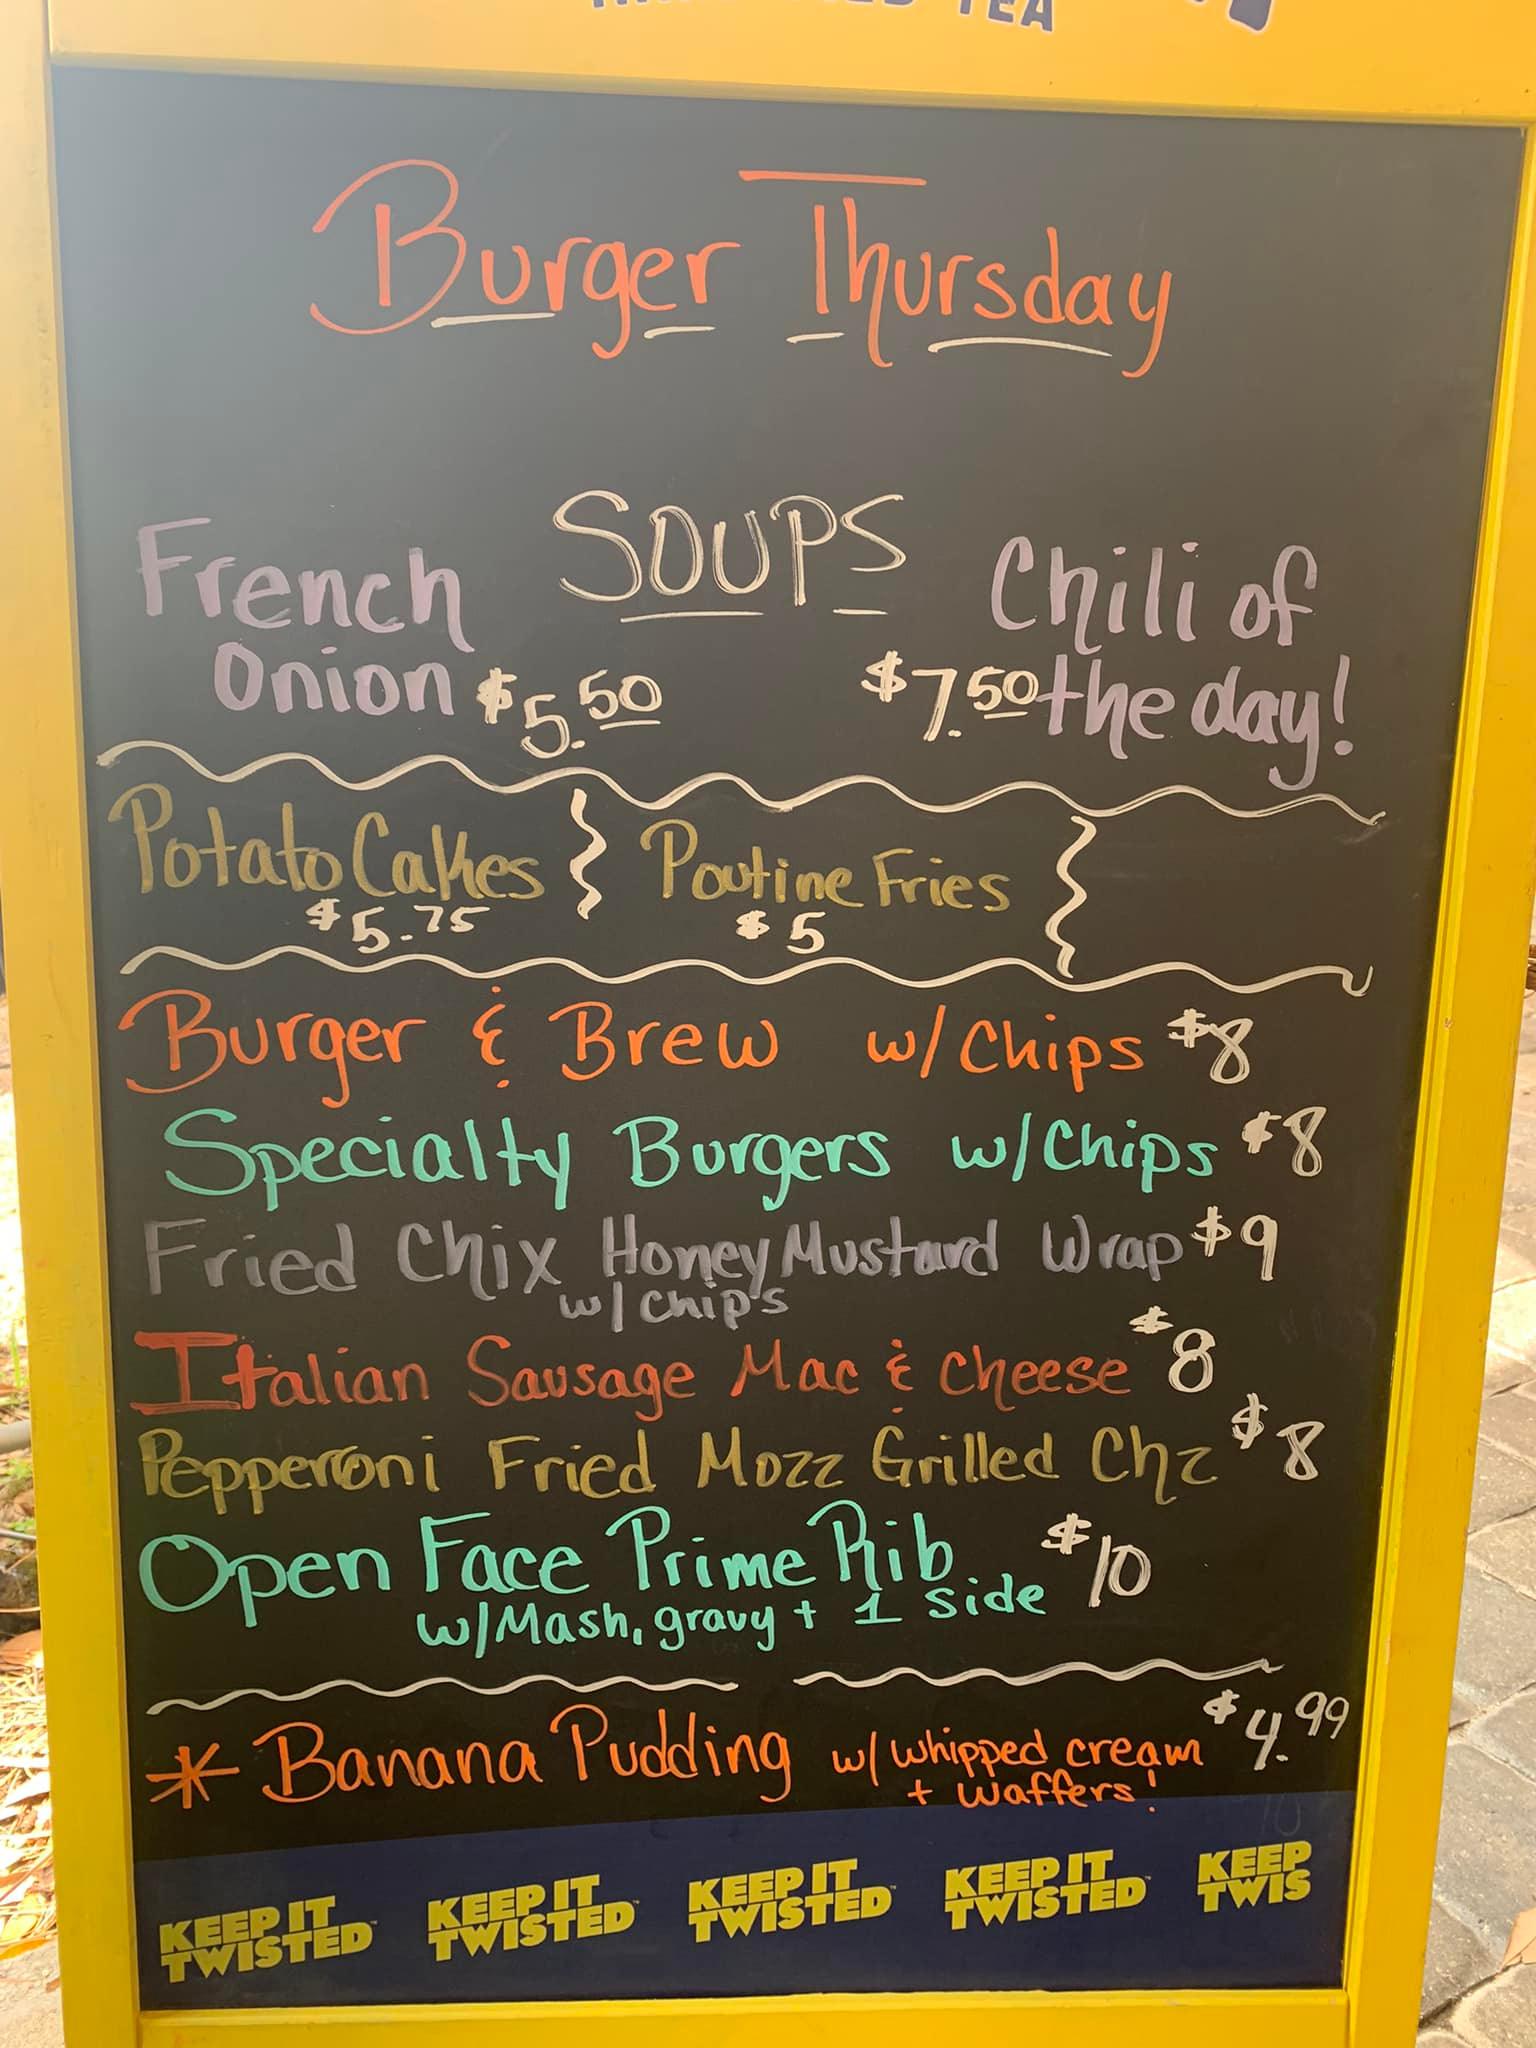 TEA
Burger Thursday
SOUPS
French
Onion $5.50
Chili of
$7.50 the day!
Potato Cakes
$5.75
Poutine Fries
$5
Burger & Brew w/ Chips $8
Specialty Burgers w/ Chips $8
Fried Chix Honey Mustard Wrap $9
w/ Chips
Italian Sausage Mac & Cheese $8
Pepperoni Fried Mozz Grilled Chz $8
Open Face Prime Rib $10
w/ Mash, gravy + 1 Side
* Banana Pudding w/ whipped cream $4.99
+ waffers!
KEEP IT TWISTED™ KEEP IT TWISTED™ KEEP IT TWISTED™ KEEP IT TWISTED™ KEEP TWIS